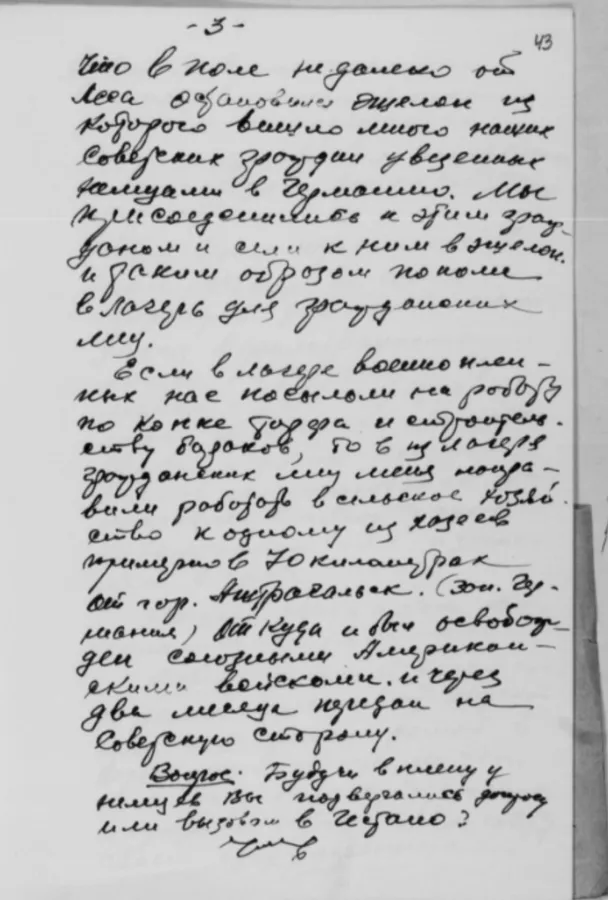 - 3 -
43
что в поле недалеко от
леса остановился эшелон из
которого вышло много наших
советских граждан увезенных
немцами в Германию. Мы
присоединились к этим граж-
даном и сели к ним в эшелон.
и таким образом попали
в лагерь для гражданских
лиц.
Если в лагере военноплен-
ных нас посылали на работу
по копке торфа и строитель-
ству бараков, то в из лагеря
гражданских лиц меня напра-
вили работать в сельское хозяй-
ство к одному из хозяев
примерно в 70 километрах
от гор. (Зап. Гер-
мания) откуда и был освобож-
ден союзными Американ-
скими войсками. и через
два месяца передан на
Советскую сторону.
Вопрос: Будучи в плену у
немцев Вы подвергались допросу
или вызовам в Гестапо?